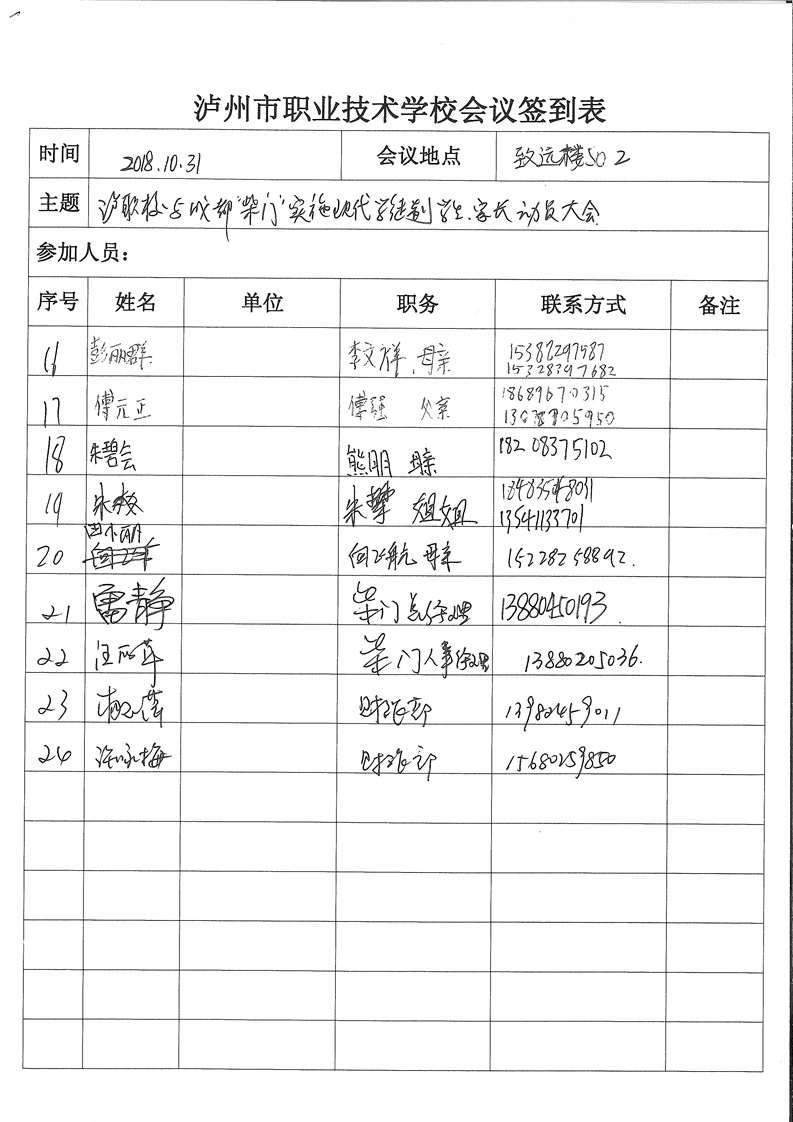 泸州市职业技术学校会议签到表
时间 2018.10.31 会议地点 致远楼502
主题 泸职校与成都“柴门”实施现代学徒制学生、家长动员大会
参加人员：
序号 姓名 单位 职务 联系方式 备注
16 彭丽群 李文祥 母亲 15387297587
15328397682
17 傅元正 傅强 父亲 18689670315
18 朱碧会 熊明 母亲 18208375102
19 朱敏 朱攀 姐姐
13541133701
20 母亲 15228258892.
21 雷静 柴门 13880450193.
22 汪 柴门人事 13880205036.
23 财政部 13982459011
24 梅 财政部 15680259850